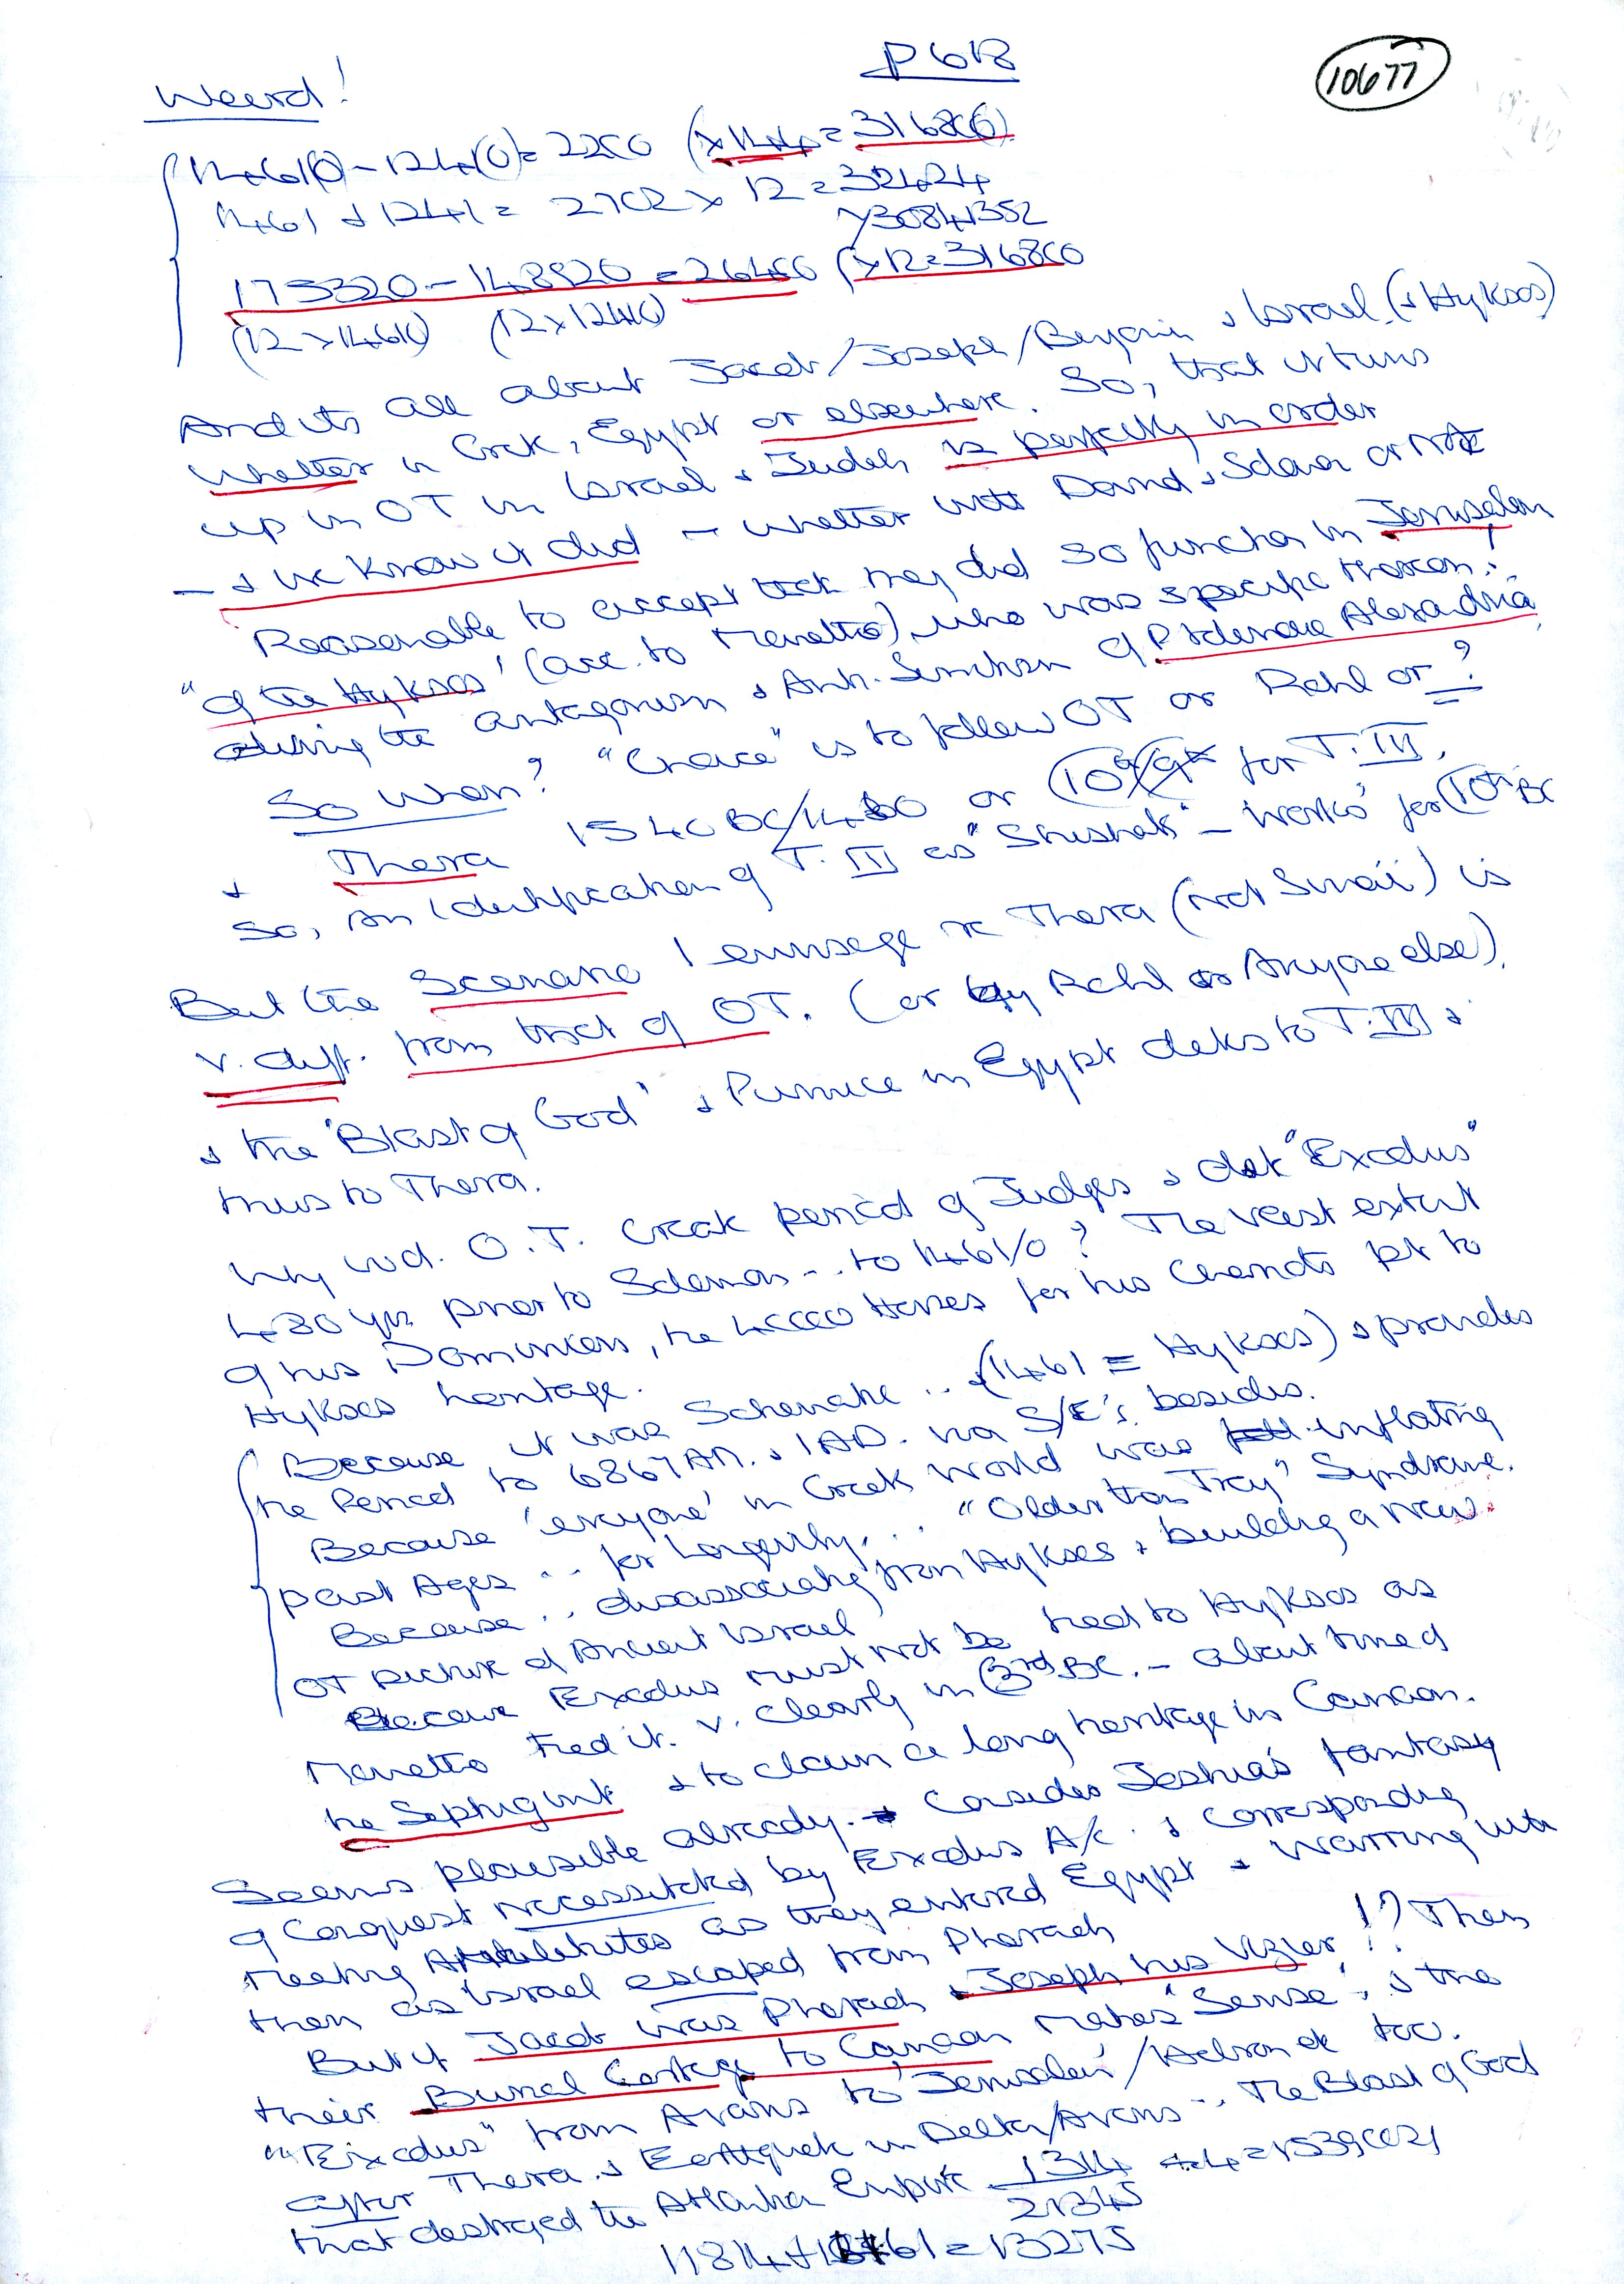 P 618
10677
Weird!
1461(0) - 1241(0) = 2200 (x 144 = 316800)
1461 + 1241 = 2702 x 12 = 32424
175320 - 148920 = 26400 (x12 = 316800
(12 x 14610) (12 x 12410)
And its all about Jacob/Joseph/Benjamin & Israel (& Hyksos)
Whether in Greek, Egypt or elsewhere. So, that it turns
up in OT in Israel & Judah is perfectly in order
- & we know it did - whether with David & Solomon or not
Reasonable to accept that they did so function in Jerusalem
"of the Hyksos" (acc. to Manetho), who was specific thereon!
during the antagonism & Anti-Semitism of Ptolemaic Alexandria
So When? "Choice" is to follow OT or Rohl or ?
& Thera 1540 BC/1480 or 10th/9th for T. III.
So, an identification of T. III as "Shishak" - 'works' for 10th BC
But the Scenario I envisage re Thera (not Sinai) is
v. diff. from that of OT. (or by Rohl or Anyone else).
& the "Blast of God" & Pumice in Egypt dates to T. III &
thus to Thera.
Why wd. O.T. Greek period of Judges & date "Exodus"
480 yrs prior to Solomon .. to 1461/0? The vast extent
of his Dominion, the 40000 Horses for his Chariots pt to
Hyksos heritage.
Because it was Schematic .. (1461 = Hyksos) & provides
the Period to 6867 AM. & 1 AD. via S/E's. besides.
Because 'everyone' in Greek World was inflating
past Ages .. for Longevity... "Older than Troy" Syndrome.
Because .. disassociating from Hyksos & building a new
OT picture of Ancient Israel
Because Exodus must not be tied to Hyksos as
Manetho tied it v. clearly in 3rd BC. - about time of
the Septuagint & to claim a long heritage in Canaan.
Seems plausible already. Consider Joshua's fantasy
of Conquest necessitated by Exodus A/c. & corresponding
meeting Amalekites as they entered Egypt & warring with
them as Israel escaped from Pharaoh
But if Jacob was Pharaoh & Joseph his Vizier !? Then
their Burial Cortege to Canaan makes 'Sense', & the
"Exodus" from Avaris to 'Jerusalem'/Hebron etc too.
after Thera & Earthquake in Delta/Avaris .. The Blast of God
that destroyed the Atlantean Empire 1314
21345
11814 + 1461 = 13275